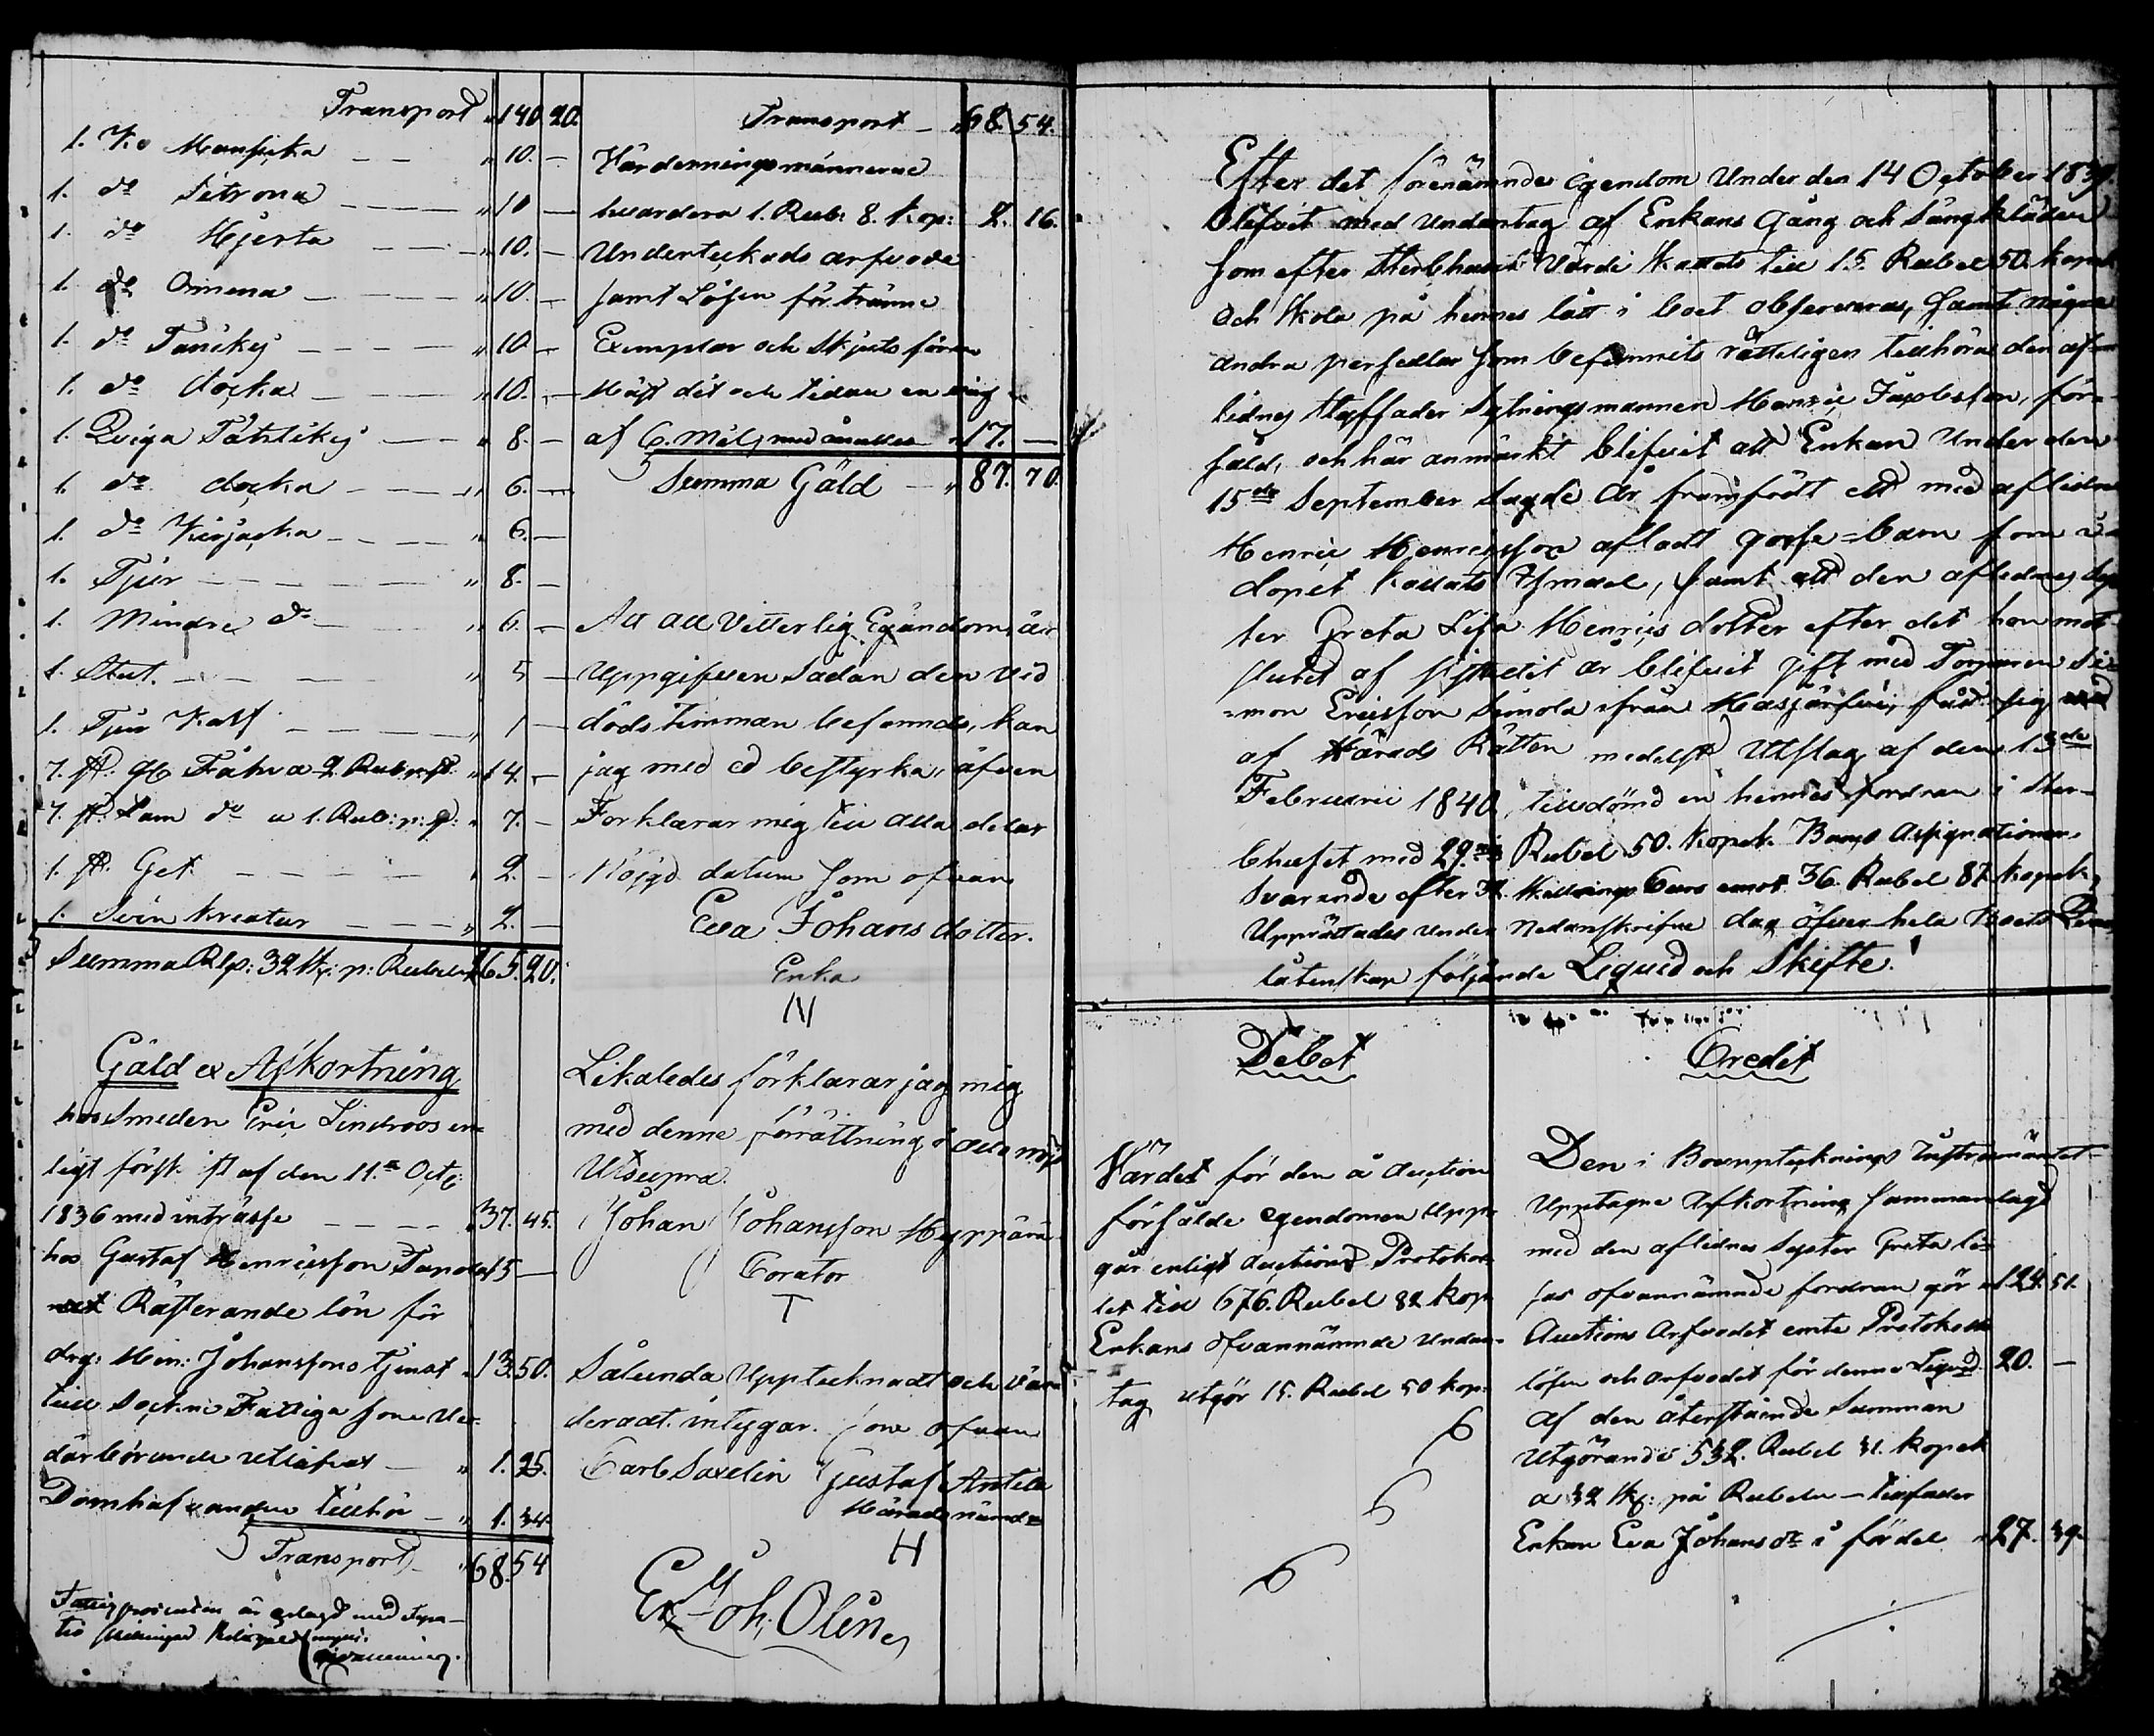 Transport " 140 20.
1. Ko Mansicka — — " 10. —
1. do Sitrona — — " 10 —
1. do Hjerta — — " 10. —
1. do Omena — — " 10. —
1. do Tänicky — — " 10. —
1. do Docka — — " 10. —
1. Qviga Tähticky — — " 8. —
1. do docka — — " 6. —
1. do Kirjacka — — " 6. —
1. Tjur — — " 8. —
1. Mindre do — — " 6. —
1. Stut. — — " 5 —
1. Tjur Kalf — — " 1 —
7. st. Får a 2 Rub. p. st. " 14. —
7. st. Lam do a 1. Rub: p: st: " 7. —
1. st. Get — — " 2. —
1. Svin kreatur — — " 2. —
Summa Rbs: 32 sk: p: Rubeln 265. 20.
Gäld & Afkortning
hos Smeden Eric Lindroos en-
ligt förskr. st af den 11.a Octb:
1836 med inträsse — — " 37. 45.
hos Gustaf Henricsson Tanola 15 —
Resterande lön för
drg: Hen: Johanssons tjenst " 13. 50.
till Sockne Fattiga som
därbörande utlåfvat — " 1. 25.
Domhafvanden tillhör — " 1. 34.
Transport " 68. 54
är erlagd med
Transport — " 68. 54.
Värderingsmännerne
hvardera 1. Rub: 8. Kop: 2. 16.
Undertecknads arfvode
samt Lösen för tvänne
Exemplar och Skjuts för en
Häst dit och tillbaka en väg
af 6. Mil, med " 17. —
Summa Gäld — " 87. 70.
Att all Vitterlig Egendom är
Uppgifven Sådan den vid
dödstimman befanns, kan
jag med ed bestyrka, äfven
Förklarar mig till alla delar
Nöjgd datum som ofvan
Eva Johans dotter.
Enka
Likaledes förklarar jag mig
med denne förättning i allo nöjd
Utsupra.
Johan Johansson Hyppärä
Corator
Sålunda Upptecknadt och vär-
deradt. intygar. som ofvan
Carl Saxelin Gustaf Anttila
Häradsnämd=
H
Er Joh, Olin
Efter det förenämnde Egendom Under den 14 October 1839.
blifvit med Undantag af Enkans Gång och Sängkläder
som efter Sterbhusets Värde skattats till 15. Rubel 50. kopek
och skola på hennes lått i boet observeras, samt några
andra persedlar som befunnits rätteligen tillhöra den af-
lidnes Styffader Sytningsmannen Henric Jacobsson, för-
såld, och här anmärkt blifvit att Enkan Under den
15de September Sagde år framfödt ett med aflidne
Henric Henricsson afladt gosse=barn som i
dopet kallats Ismael, samt att den aflidnes Sys-
ter Greta Lisa Henrics dotter efter det hon mot
slutet af sistvekit år blifvit gift med Torparen Si-
=mon Ericsson Simola ifrån fått sig
af Härads Rätten medelst Utslag af den 13de
Februarii 1840, tilldömd en hennes fordran i Ster-
bhuset med 29. Rubel 50. kopek. Banco Assignationer,
Svarande efter 32. Skillings Curs emot 36. Rubel 87. kopek,
Upprättades under Nedanskrifne dag öfver hela Boets
låtenskap följande Liqvid och Skifte!
Debet
Värdet för den å Auction
försålde egendomen Upp-
går enligt Auctions Protokol-
let till 676. Rubel 82 kop.
Enkans ofvannämnde Undan-
tag utgör 15. Rubel 50 kop:
Credit
Den i Bouppteknings Instrumäntet
Upptagne Afkortning Sammanlagd
med den aflidnes Syster Greta Li-
sas ofvannämnde fordran gör " 124. 51.
Auctions Arfvodet emte Protokolls
lösen och arfvodet för denne Liqvid. 20. —
Af den återstående Summan
Utgörande 532. Rubel 31. kopek
a 32 sk: på Rubeln — tillfaller
Enkan Eva Johans dr i fördel " 27. 39.